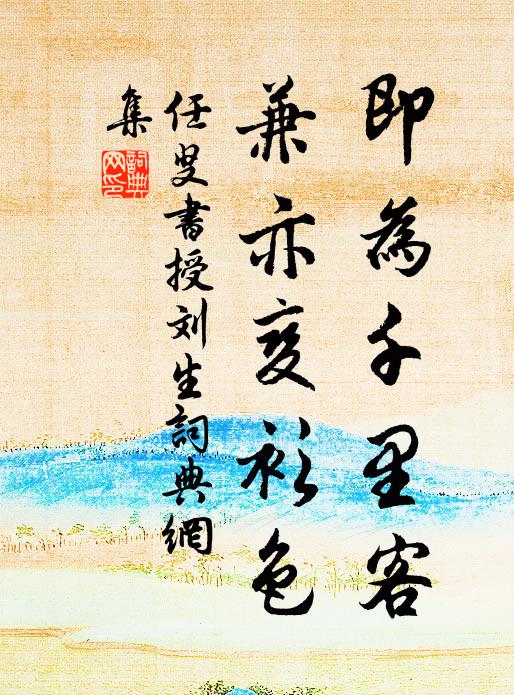 即為千里客
兼亦变衫色
任叟書授刘生詞典網
集
詞典网印